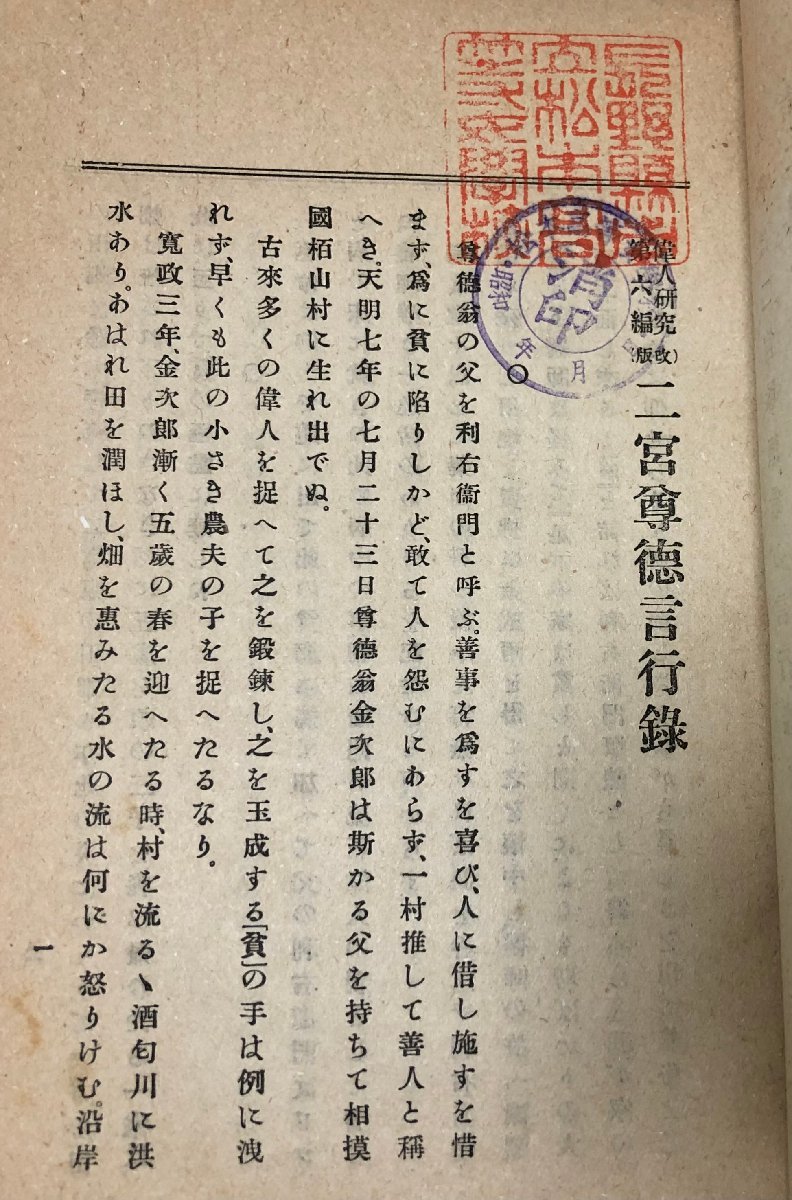 偉人研究
第六編
(改版)
二宮尊德言行錄
○
尊德翁の父を利右衞門と呼ぶ。善事を爲すを喜び、人に借し施すを惜
まず、爲に貧に陷りしかど、敢て人を怨むにあらず、一村推して善人と稱
へき。天明七年の七月二十三日尊德翁金次郎は斯かる父を持ちて相摸
國栢山村に生れ出でぬ。
古來多くの偉人を捉へて之を鍛鍊し、之を玉成する「貧」の手は例に洩
れず、早くも此の小さき農夫の子を捉へたるなり。
寬政三年、金次郎漸く五歲の春を迎へたる時、村を流るヽ酒匂川に洪
水あり。あはれ田を潤ほし、畑を惠みたる水の流は何にか怒りけむ。沿岸
一
消印
昭和
年
月